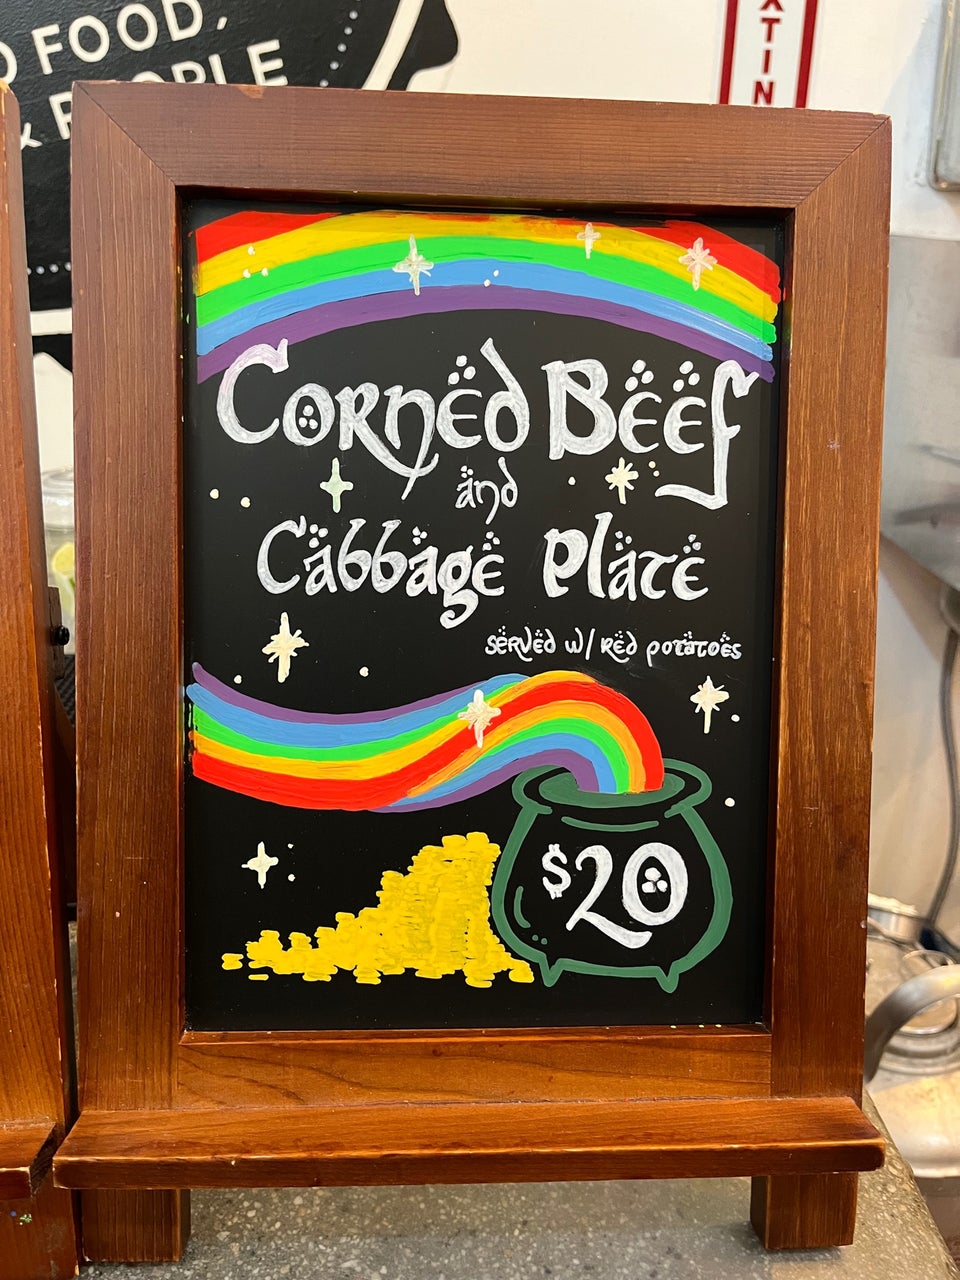 FOOD,
& PEOPLE
XTIN
Corned Beef
and
Cabbage Plate
served w/ red potatoes
$20